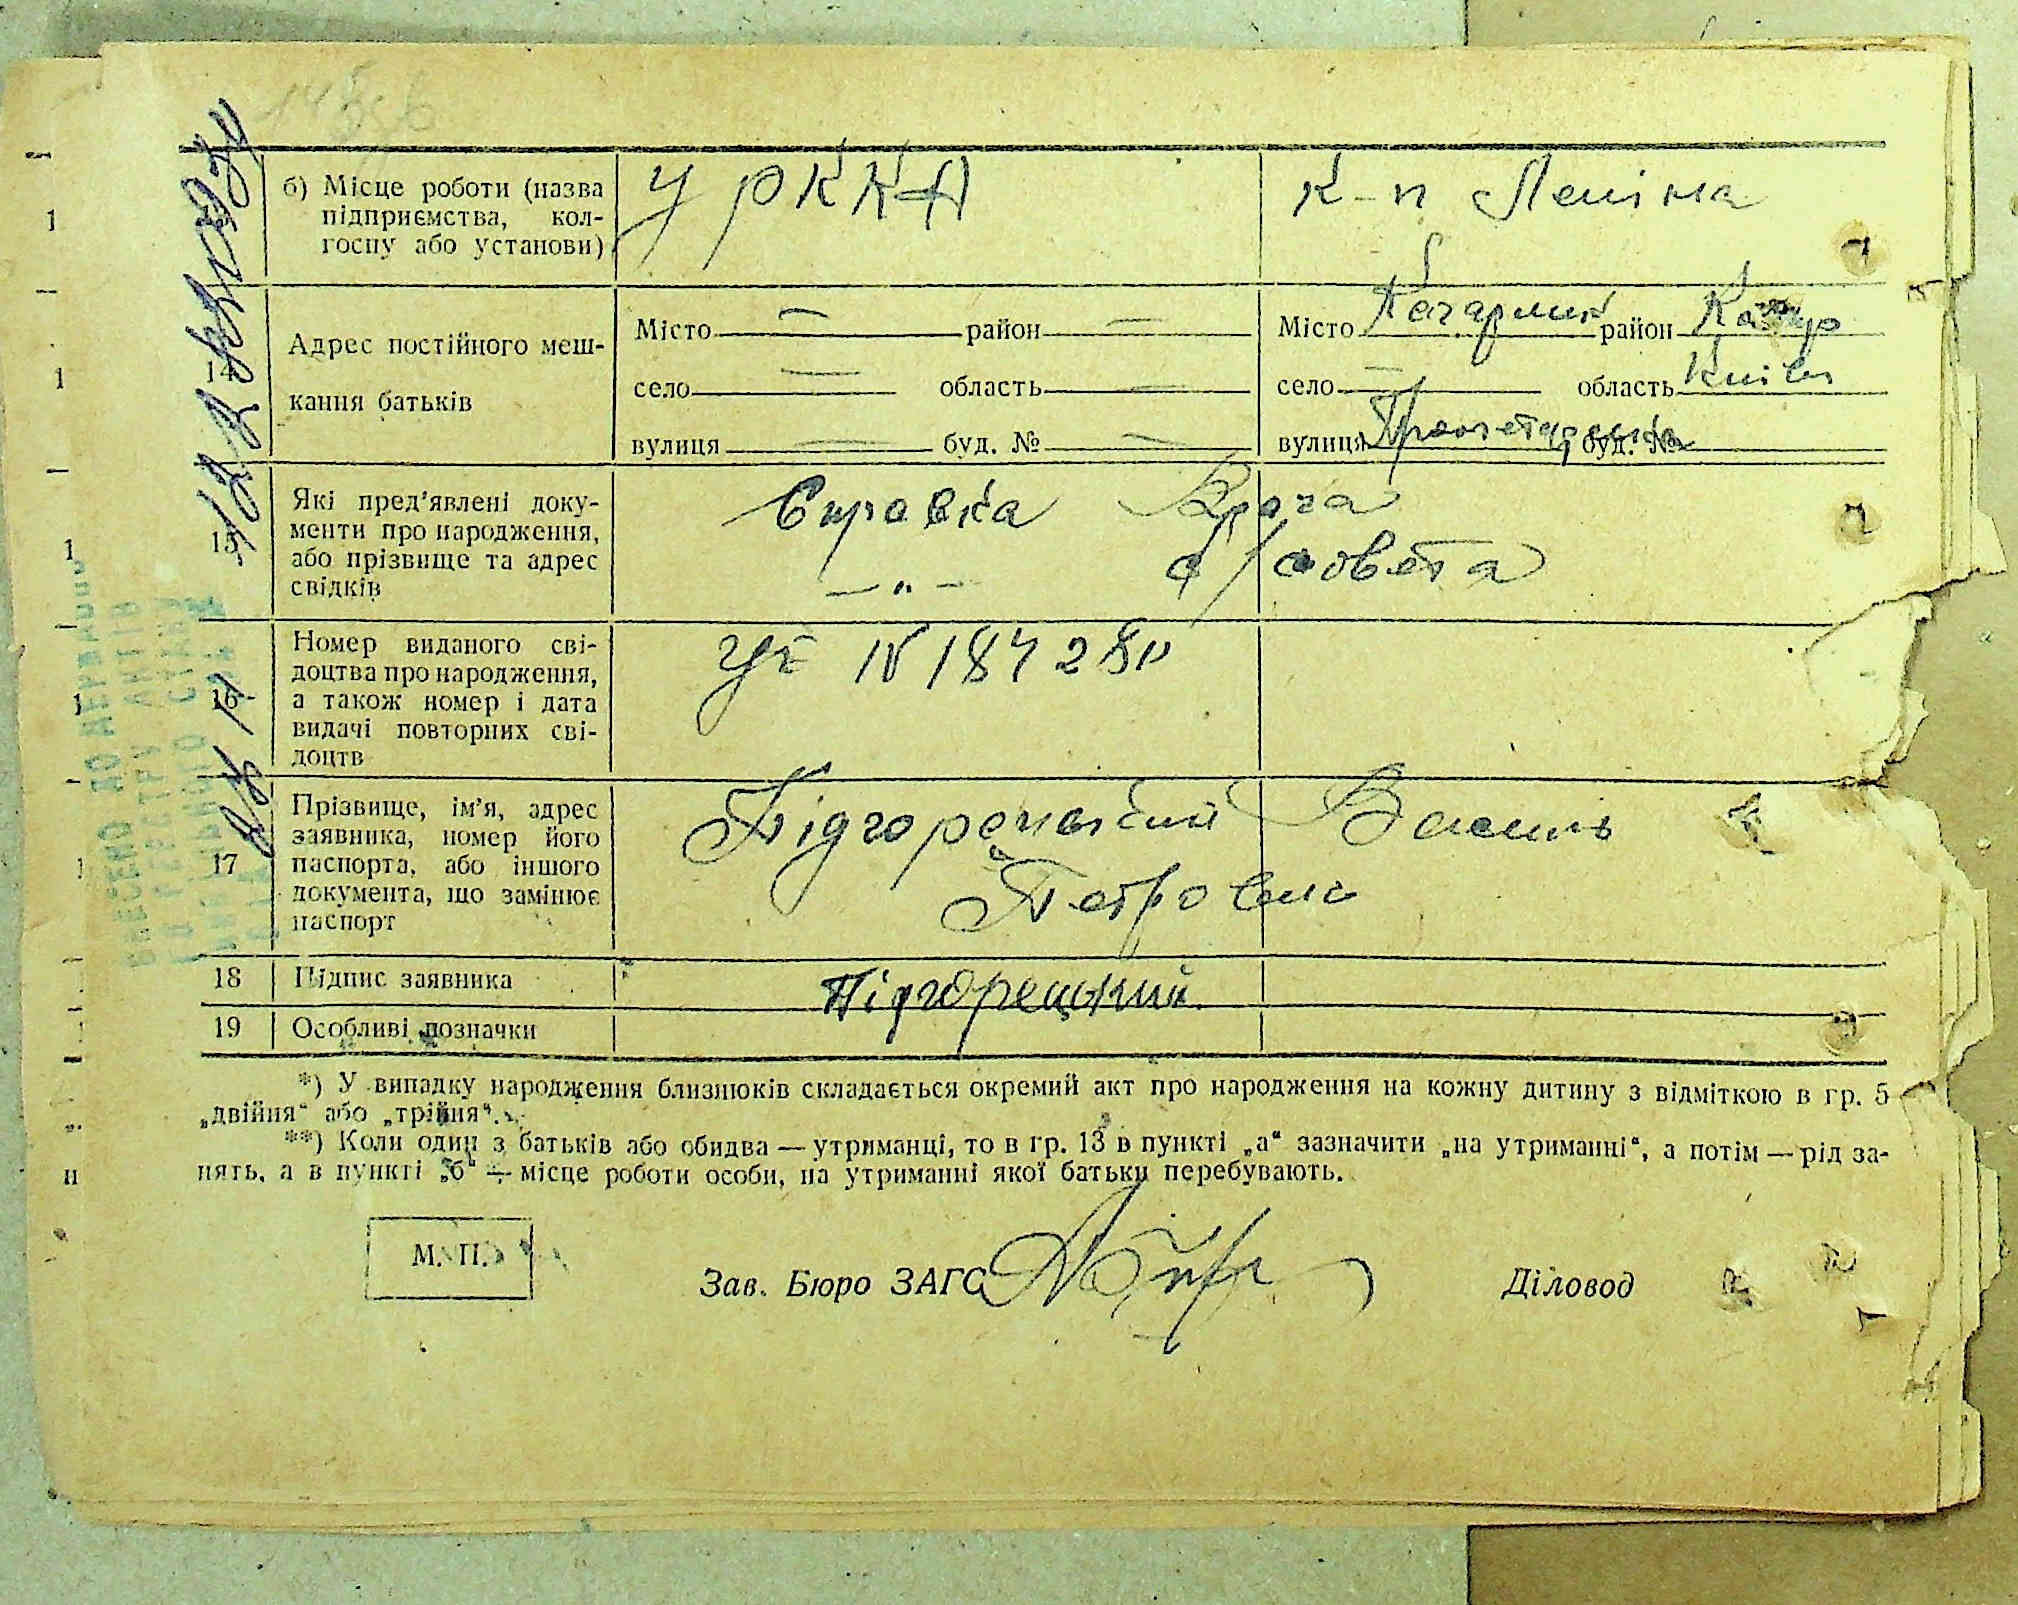 б) Місце роботи (назва
підприємства, кол-
госпу або установи)
У РККА
к-п Леніна
14
Адрес постійного меш-
кання батьків
Місто — район —
село — область —
вулиця — буд. № —
Місто Кагарлик район Кагар
село — область Київ
вулиця Пролетарська буд. №
15
Які пред'явлені доку-
менти про народження,
або прізвище та адрес
свідків
Справка Врача
— „ — с/совета
16
Номер виданого сві-
доцтва про народження,
а також номер і дата
видачі повторних сві-
доцтв
№ 184280
17
Прізвище, ім'я, адрес
заявника, номер його
паспорта, або іншого
документа, що замінює
паспорт
Підгорецький Василь
Петрович
18 Підпис заявника
Підгорецький
19 Особливі позначки
*) У випадку народження близнюків складається окремий акт про народження на кожну дитину з відміткою в гр. 5
„двійня“ або „трійня“.
**) Коли один з батьків або обидва — утриманці, то в гр. 13 в пункті „а“ зазначити „на утриманні“, а потім — рід за-
нять, а в пункті „б“ — місце роботи особи, на утриманні якої батьки перебувають.
М. П.
Зав. Бюро ЗАГС
Діловод